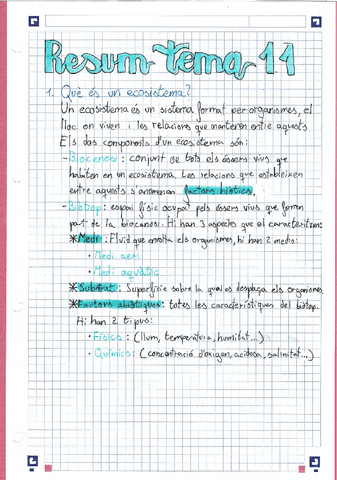 Resum tema 11
1. Què és un ecosistema?
Un ecosistema és un sistema format per organismes, el
lloc on viuen i les relacions que mantenen entre aquests.
Els dos components d'un ecosistema són:
- Biocenosi: conjunt de tots els éssers vius que
habiten en un ecosistema. Les relacions que estableixen
entre aquests s'anomenen factors biòtics.
- Biòtop: espai físic ocupat pels éssers vius que formen
part de la biocenosi. Hi han 3 aspectes que el caracteritzen:
* Medi: Fluid que envolta els organismes, hi han 2 medis:
· Medi aeri
· Medi aquàtic
* Substrat: Superfície sobre la qual es desplaça els organismes
* Factors abiòtiques: totes les característiques del biòtop.
Hi han 2 tipus:
· Físics: (llum, temperatura, humitat...)
· Químics: (concentració d'oxigen, acidesa, salinitat...)